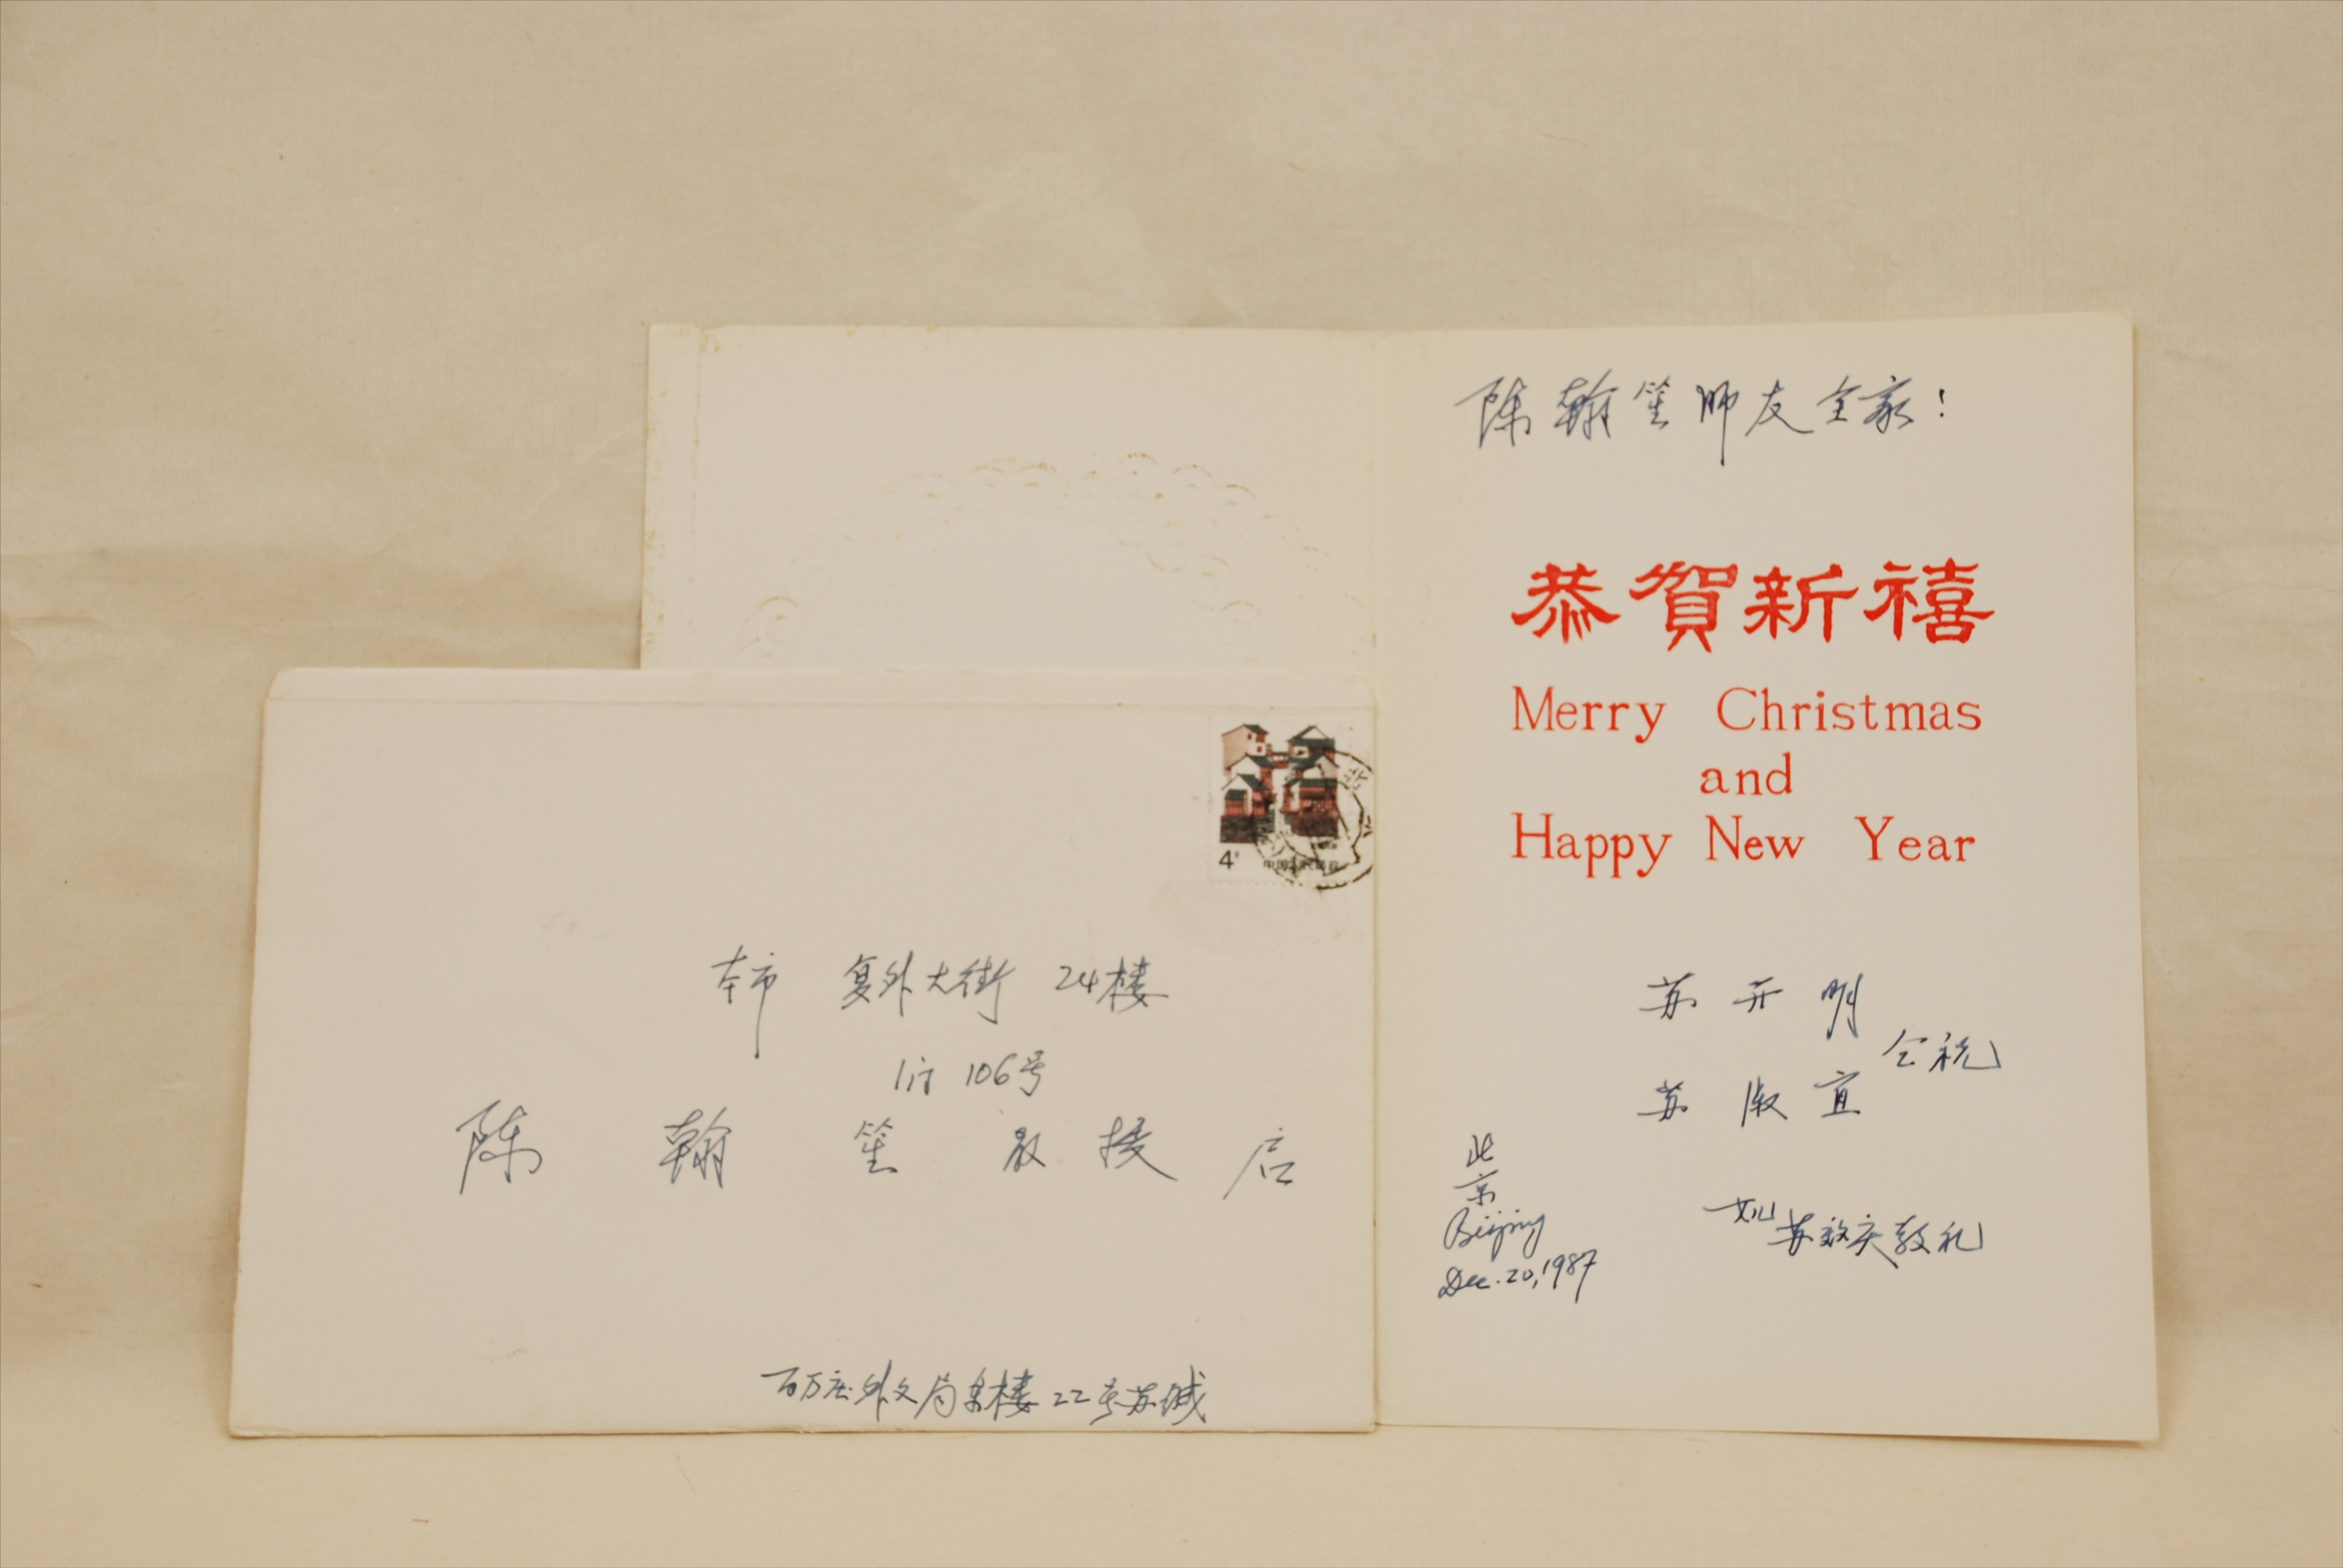 陈翰笙师友全家！
恭賀新禧
Merry Christmas
and
Happy New Year
苏开明
苏淑宜
仝祝
女儿苏效庆敬礼
北京
Beijing
Dec. 20, 1987
4
本市 复外大街 24楼
1门 106号
陈翰笙教授启
百万庄外文局东楼22号苏缄